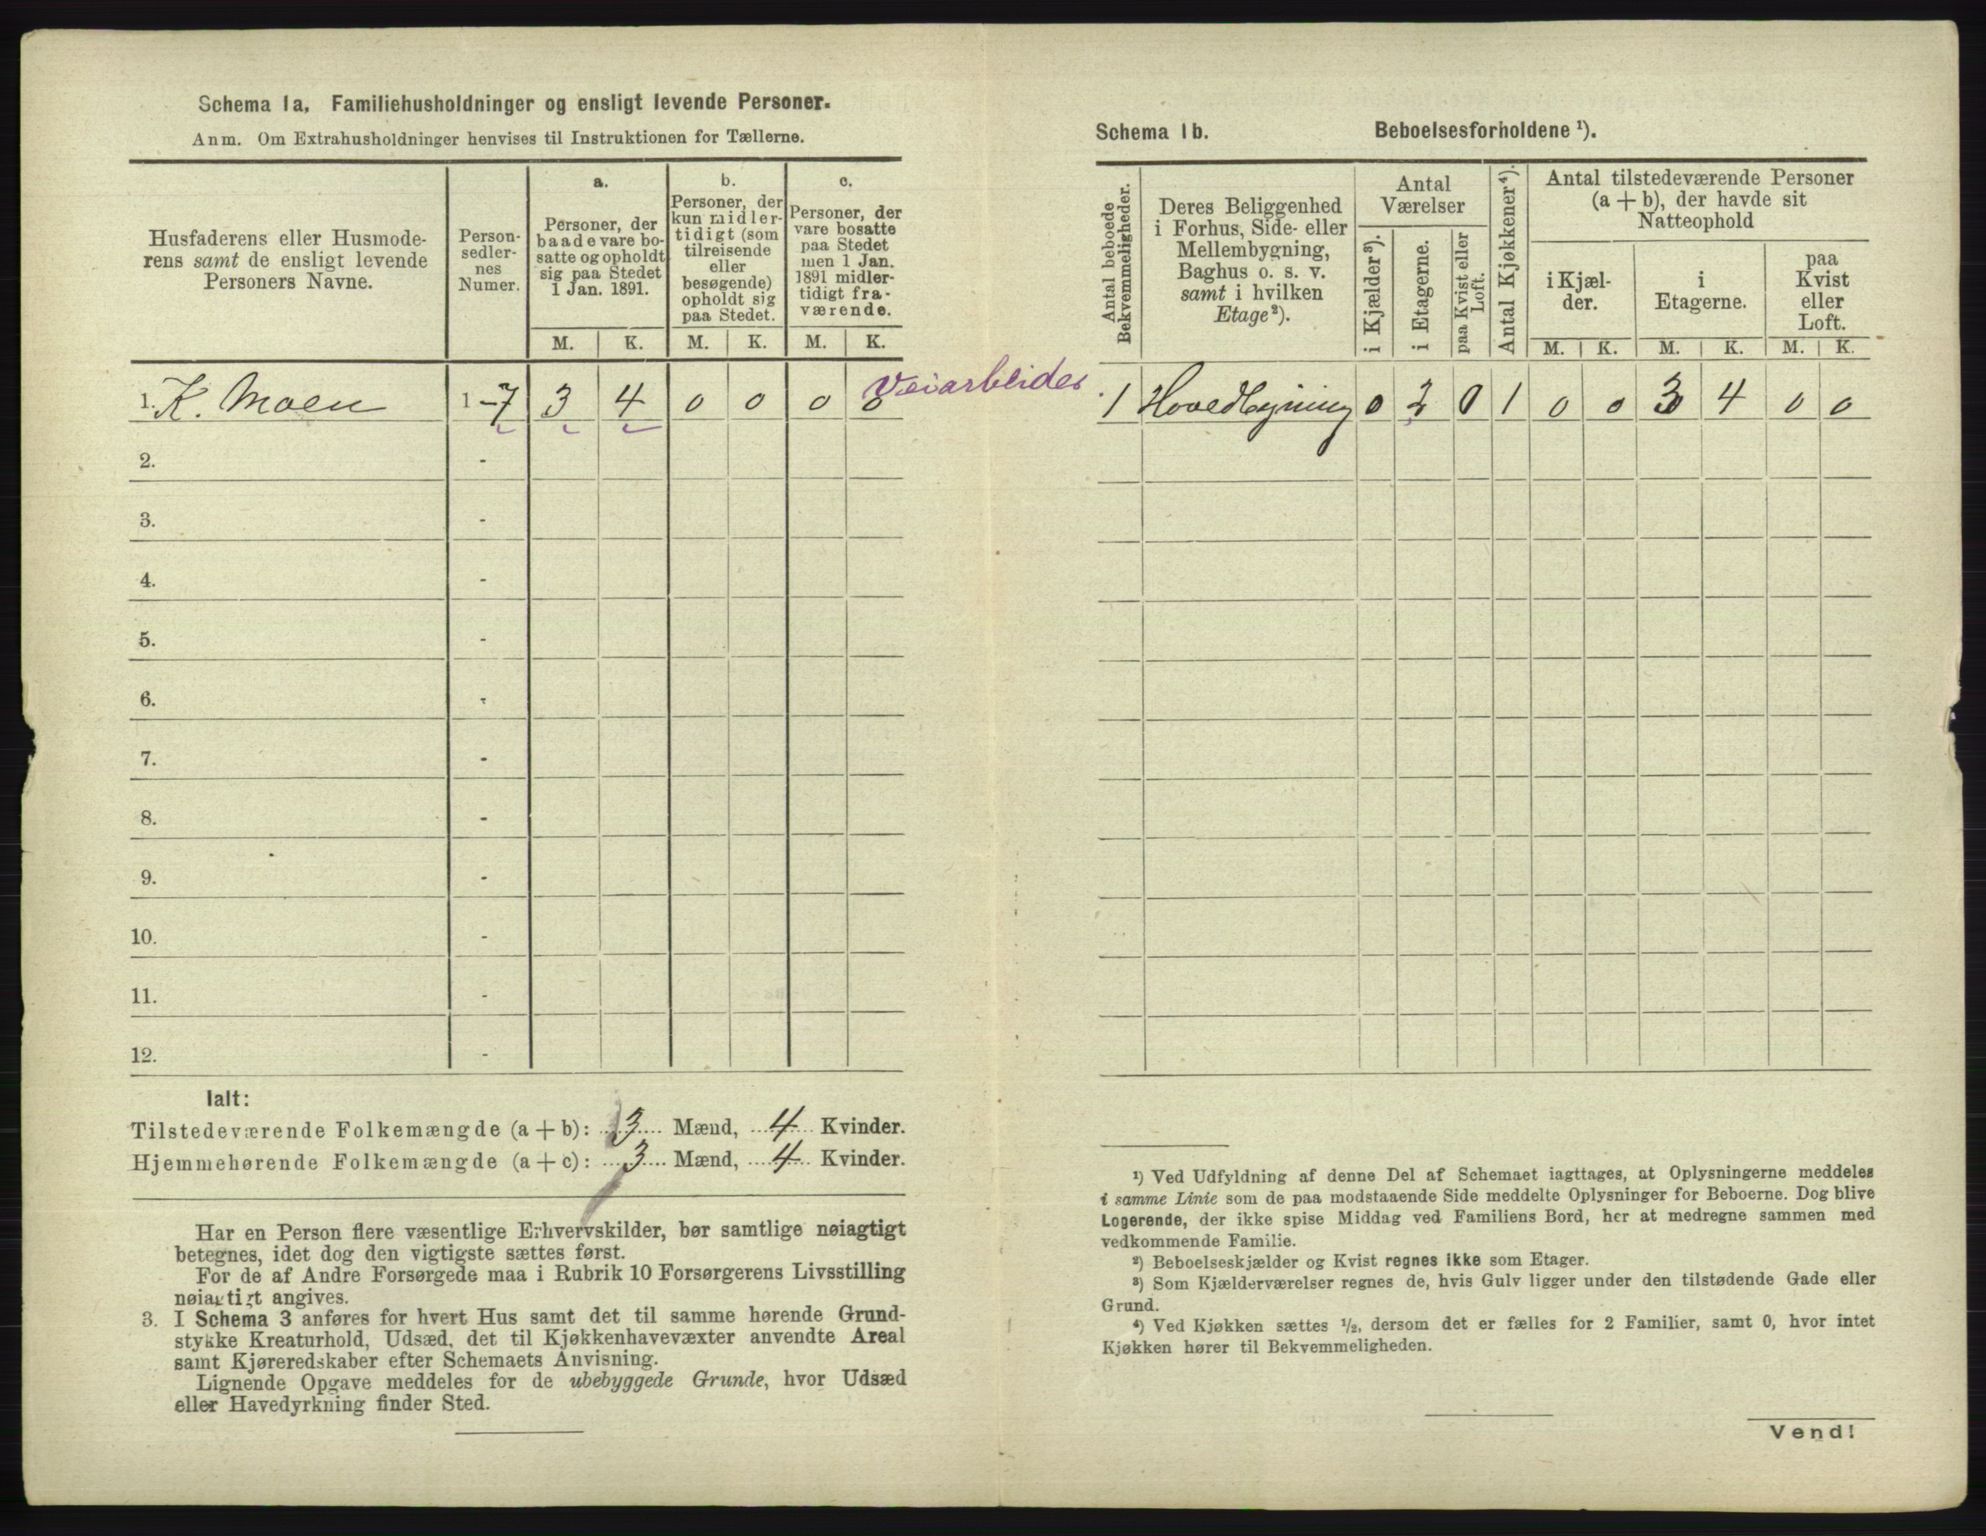 Schema 1a. Familiehusholdninger og ensligt levende Personer.
Anm. Om Extrahusholdninger henvises til Instruktionen for Tællerne.
Husfaderens eller Husmode-
rens samt de ensligt levende
Personers Navne.
Person-
sedler-
nes
Numer.
a.
Personer, der
baade vare bo-
satte og opholdt
sig paa Stedet
1 Jan. 1891.
b.
Personer, der
kun midler-
tidigt (som
tilreisende
eller
besøgende)
opholdt sig
paa Stedet.
c.
Personer, der
vare bosatte
paa Stedet
men 1 Jan.
1891 midler-
tidigt fra-
værende.
M. K. M. K. M. K.
1. K. Moen 1 - 7 3 4 0 0 0 0 Veiarbeider
2. -
3. -
4. -
5. -
6. -
7. -
8. -
9. -
10. -
11. -
12. -
Ialt:
Tilstedeværende Folkemængde (a + b): 3 Mænd, 4 Kvinder.
Hjemmehørende Folkemængde (a + c): 3 Mænd, 4 Kvinder.
Har en Person flere væsentlige Erhvervskilder, bør samtlige nøiagtigt
betegnes, idet dog den vigtigste sættes først.
For de af Andre Forsørgede maa i Rubrik 10 Forsørgerens Livsstilling
nøiagtigt angives.
3. I Schema 3 anføres for hvert Hus samt det til samme hørende Grund-
stykke Kreaturhold, Udsæd, det til Kjøkkenhavevæxter anvendte Areal
samt Kjøreredskaber efter Schemaets Anvisning.
Lignende Opgave meddeles for de ubebyggede Grunde, hvor Udsæd
eller Havedyrkning finder Sted.
Schema 1b. Beboelsesforholdene ¹).
Antal beboede
Bekvemmeligheder.
Deres Beliggenhed
i Forhus, Side- eller
Mellembygning,
Baghus o. s. v.
samt i hvilken
Etage²).
Antal
Værelser
i Kjælder³).
i Etagerne.
paa Kvist eller
Loft.
Antal Kjøkkener⁴).
Antal tilstedeværende Personer
(a + b), der havde sit
Natteophold
i Kjæl-
der.
i
Etagerne.
paa
Kvist
eller
Loft.
M. K. M. K. M. K.
1 Hovedbygning 0 2 0 1 0 0 3 4 0 0
¹) Ved Udfyldning af denne Del af Schemaet iagttages, at Oplysningerne meddeles
i samme Linie som de paa modstaaende Side meddelte Oplysninger for Beboerne. Dog blive
Logerende, der ikke spise Middag ved Familiens Bord, her at medregne sammen med
vedkommende Familie.
²) Beboelseskjælder og Kvist regnes ikke som Etager.
³) Som Kjælderværelser regnes de, hvis Gulv ligger under den tilstødende Gade eller
Grund.
⁴) Ved Kjøkken sættes ½, dersom det er fælles for 2 Familier, samt 0, hvor intet
Kjøkken hører til Bekvemmeligheden.
Vend!